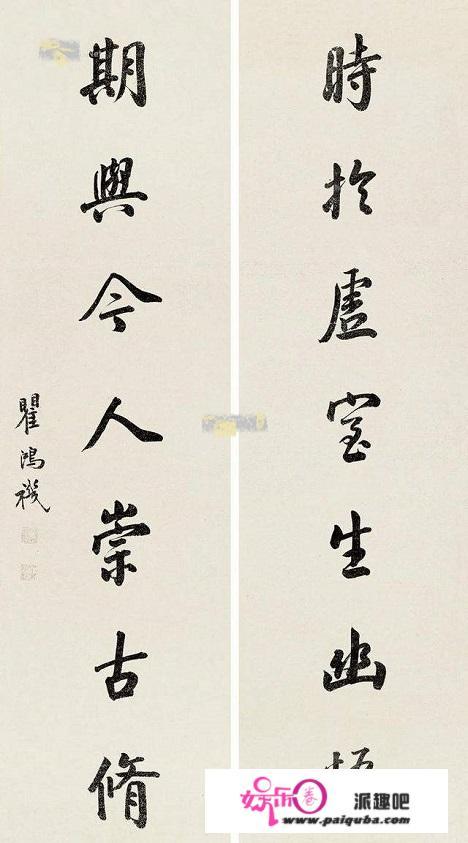 時於虛室生幽
期與今人崇古脩
瞿鴻禨
娱乐圈
派趣吧
www.paiquba.com